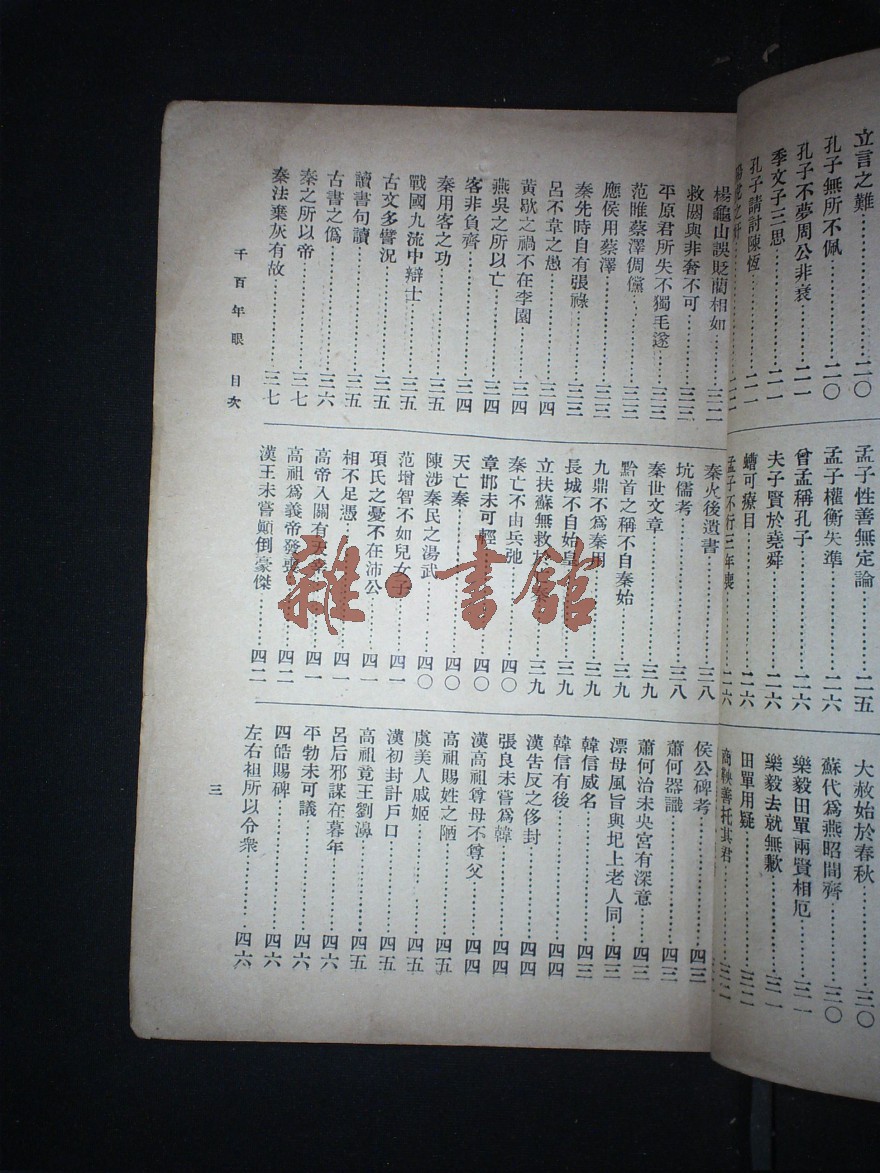 立言之難……二〇
孔子無所不佩……二〇
孔子不夢周公非衰……二一
季文子三思……二一
孔子請討陳恆……二一
孟子性善無定論……二五
孟子權衡失準……二六
曾孟稱孔子……二六
夫子賢於堯舜……二六
螬可療目……二六
孟子不行三年喪……二六
大赦始於春秋……三〇
蘇代為燕昭間齊……三〇
樂毅田單兩賢相厄……三一
樂毅去就無歉……三一
田單用疑……三二
商鞅善托其君……三二
楊龜山誤貶藺相如……三二
救閼與非奢不可……三三
平原君所失不獨毛遂……三三
范雎蔡澤倜儻……三三
應侯用蔡澤……三三
秦先時自有張祿……三三
呂不韋之愚……三四
黃歇之禍不在李園……三四
燕吳之所以亡……三四
客非負齊……三四
秦用客之功……三五
戰國九流中辯士……三五
古文多譬況……三五
讀書句讀……三五
古書之偽……三六
秦之所以帝……三七
秦法棄灰有故……三七
秦火後遺書……三八
坑儒考……三八
秦世文章……三九
黔首之稱不自秦始……三九
九鼎不為秦用……三九
長城不自始皇……三九
立扶蘇無救於……三九
秦亡不由兵弛……四〇
章邯未可輕……四〇
天亡秦……四〇
陳涉秦民之湯武……四〇
范增智不如兒女子……四一
項氏之憂不在沛公……四一
相不足憑……四一
高帝入關有天……四一
高祖為義帝發喪……四二
漢王未嘗顛倒豪傑……四二
侯公碑考……四三
蕭何器識……四三
蕭何治未央宮有深意……四三
漂母風旨與圯上老人同……四三
韓信威名……四三
韓信有後……四四
漢告反之侈封……四四
張良未嘗為韓……四四
漢高祖尊母不尊父……四四
高祖賜姓之陋……四五
虞美人戚姬……四五
漢初封計戶口……四五
高祖竟王劉濞……四五
呂后邪謀在暮年……四六
平勃未可議……四六
四皓賜碑……四六
左右袒所以令眾……四六
千百年眼 目次
三
雜·書館